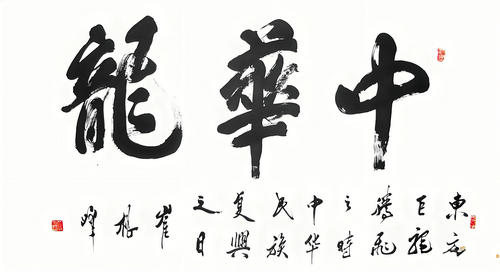 中華龍
東方
巨龍
騰飛
之時
中华
民族
复興
之日
崔
峰